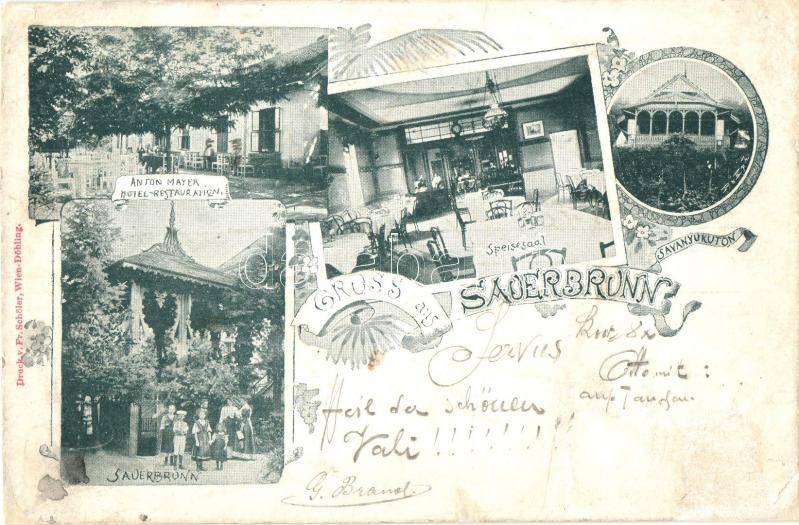 ANTON MAYER
HOTEL-RESTAURATION.
Speisesaal
SAVANYUKUTON
GRUSS aus
SAUERBRUNN
SAUERBRUNN
Druck v. Fr. Schöler, Wien-Döbling.
Servus
Heil der schönen
Vali!!!!!!!!
G. Brand.